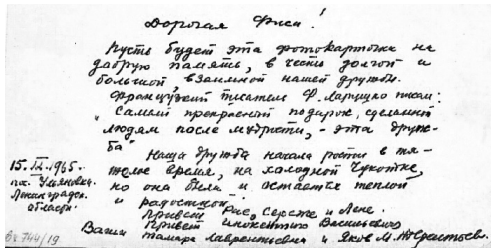 Дорогая Фиса!
Пусть будет эта фотокарточка на
добрую память, в честь долгой и
большой, взаимной нашей дружбы.
Французский писатель Ф. Ларошко писал:
"Самый прекрасный подарок, сделанный
людям после мудрости, - эта друж-
ба"
Наша дружба начала расти в тя-
желое время, на холодной Чукотке,
но она была и остается теплой
и радостной.
Привет Рае, Сереже и Лене.
Привет Иннокентию Васильевичу
Ваши Тамара Лаврентьевна и Яков М.
15.IX.1965.
пос. Ульяновка
Ленинградск.
области.
744/19